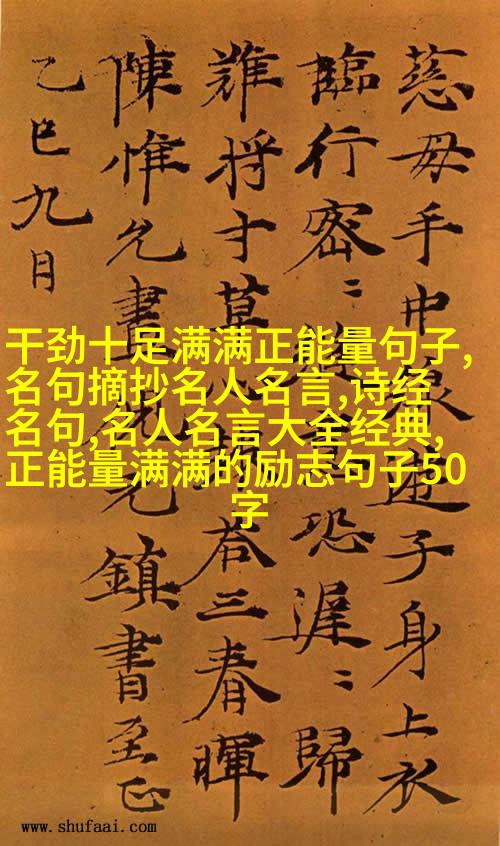 慈母手中遊子身上衣
臨行密〻縫意恐遲〻歸
難将寸草心荅三春暉
陳惟允書鎮書至正
乙巳九月
干劲十足满满正能量句子,
名句摘抄名人名言,诗经
名句,名人名言大全经典,
正能量满满的励志句子50
字
www.shufaai.com